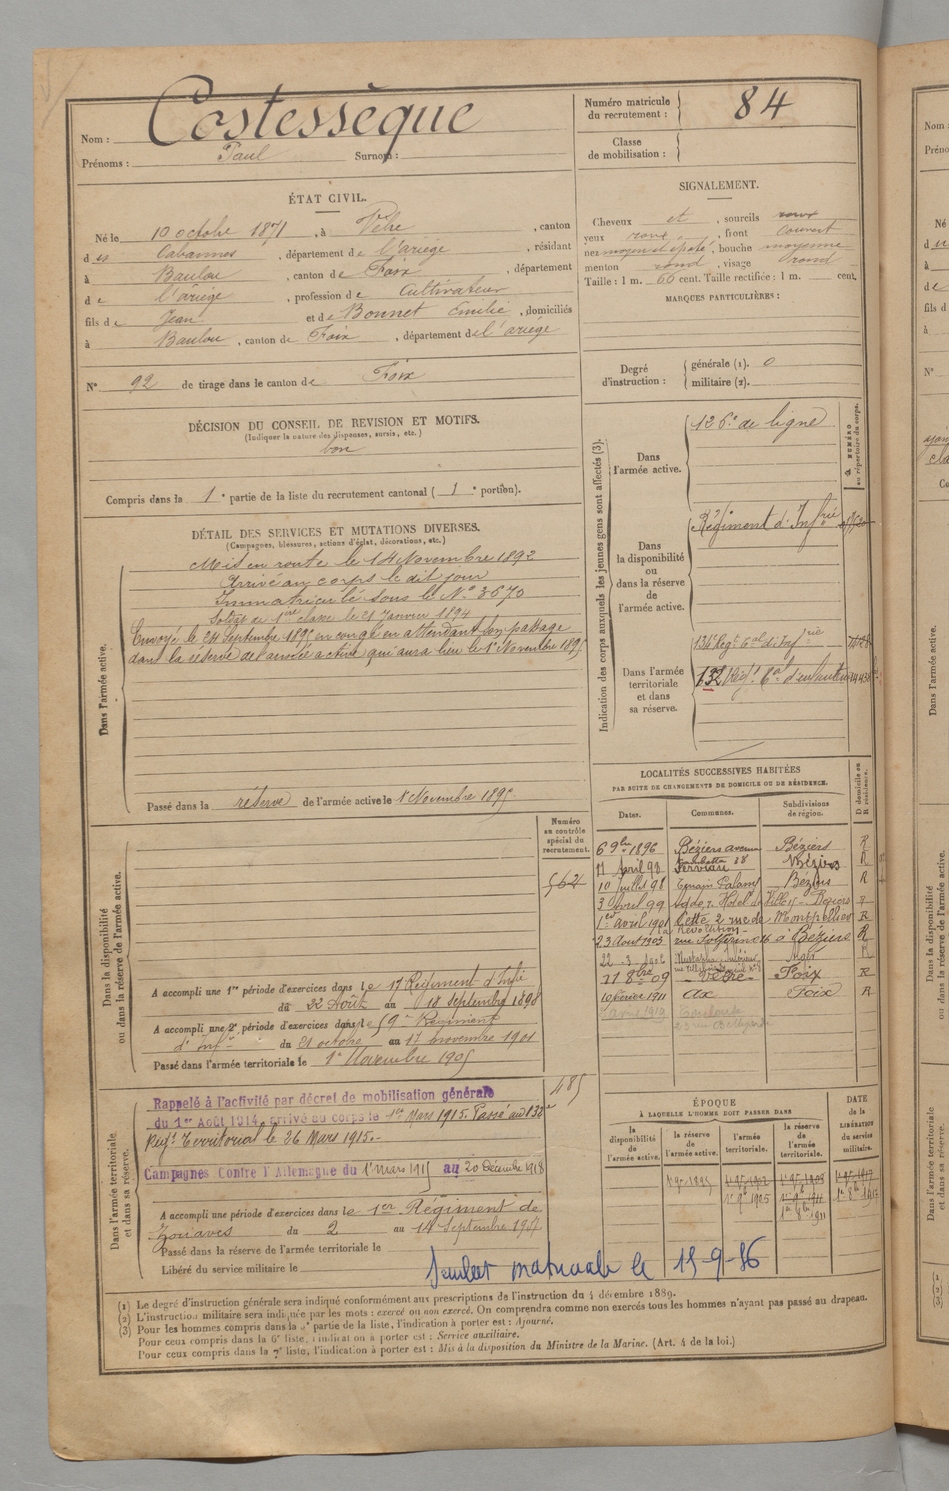 Nom : Costessèque
Prénoms : Paul Surnom :
Numéro matricule du recrutement : 84
Classe de mobilisation :
ÉTAT CIVIL.
Né le 10 octobre 1871, à Vèbre, canton
d es Cabannes, département de l'ariège, résidant
à Baulou, canton de Foix, département
d e l'ariège, profession de Cultivateur
fils d e Jean et de Bonnet Emilie, domiciliés
à Baulou, canton de Foix, département de l'ariège
N° 92 de tirage dans le canton de Foix
SIGNALEMENT.
Cheveux et, sourcils roux
yeux roux, front couvert
nez moyen et épaté, bouche moyenne
menton rond, visage rond
Taille : 1 m. 60 cent. Taille rectifiée : 1 m. cent.
MARQUES PARTICULIÈRES :
Degré d'instruction : générale (1). 0
militaire (2).
DÉCISION DU CONSEIL DE REVISION ET MOTIFS.
(Indiquer la nature des dispenses, sursis, etc.)
bon
Compris dans la 1e partie de la liste du recrutement cantonal ( 1e portion).
DÉTAIL DES SERVICES ET MUTATIONS DIVERSES.
(Campagnes, blessures, actions d'éclat, décorations, etc.)
Dans l'armée active.
Mis en route le 14 Novembre 1892
Arrivé au corps le dit jour
Immatriculé sous le N° 3670
Soldat de 1ère classe le 21 Janvier 1894
Envoyé le 24 Septembre 1895 en congé en attendant son passage
dans la réserve de l'armée active qui aura lieu le 1er Novembre 1895
Passé dans la réserve de l'armée active le 1er Novembre 1895
Indication des corps auxquels les jeunes gens sont affectés (3).
NUMÉRO au répertoire du corps.
Dans l'armée active.
126e de ligne
Dans la disponibilité ou dans la réserve de l'armée active.
Régiment d'Infrie
Dans l'armée territoriale et dans sa réserve.
134e Regt tal d'Infrie
132 Regt tal d'infanterie
LOCALITÉS SUCCESSIVES HABITÉES
PAR SUITE DE CHANGEMENTS DE DOMICILE OU DE RÉSIDENCE.
Dates. Communes. Subdivisions de région. D domicile ou R résidence.
6 9bre 1896 Béziers avenue Béziers R
Gambetta 28
11 Avril 98 Servian Béziers R
10 Juillet 98 Béziers R
3 Avril 99 Agde r. Hotel de Ville Beziers
1er avril 1901 Cette 2 rue de la Révolution Montpellier R
23 Aout 1903 rue Solférino à Béziers R
22 3 Mustapha Inférieur Alger R
11 8bre 09 Vèbre Foix R
10 février 1911 Ax Foix R
1919 Toulouse
Dans la disponibilité ou dans la réserve de l'armée active.
Numéro au contrôle spécial du recrutement.
562
A accompli une 1re période d'exercices dans le 17 Régiment d'Infie
du 22 Août au 18 septembre 1898
A accompli une 2e période d'exercices dans le 59e Régiment
d'Infie du 21 octobre au 17 novembre 1901
Passé dans l'armée territoriale le 1er Novembre 1905
Dans l'armée territoriale et dans sa réserve.
485
Rappelé à l'activité par décret de mobilisation générale
du 1er Août 1914, arrivé au corps le 1er Mars 1915. Passé au 132e
Regt Territorial le 26 Mars 1915.-
Campagnes Contre l'Allemagne du 1er mars 1915 au 20 Décembre 1918
A accompli une période d'exercices dans le 1er Régiment de
Zouaves du 2 au 14 Septembre
Passé dans la réserve de l'armée territoriale le
Libéré du service militaire le
matricule le 15-9-36
ÉPOQUE
À LAQUELLE L'HOMME DOIT PASSER DANS
la disponibilité de l'armée active. la réserve de l'armée active. l'armée territoriale. la réserve de l'armée territoriale. DATE de la LIBÉRATION du service militaire.
1er 9bre 1905
1er 8bre 1911
(1) Le degré d'instruction générale sera indiqué conformément aux prescriptions de l'instruction du 4 décembre 1889.
(2) L'instruction militaire sera indiquée par les mots : exercé ou non exercé. On comprendra comme non exercés tous les hommes n'ayant pas passé au drapeau.
(3) Pour les hommes compris dans la 2e partie de la liste, l'indication à porter est : Ajourné.
Pour ceux compris dans la 6e liste, l'indication à porter est : Service auxiliaire.
Pour ceux compris dans la 7e liste, l'indication à porter est : Mis à la disposition du Ministre de la Marine. (Art. 4 de la loi.)